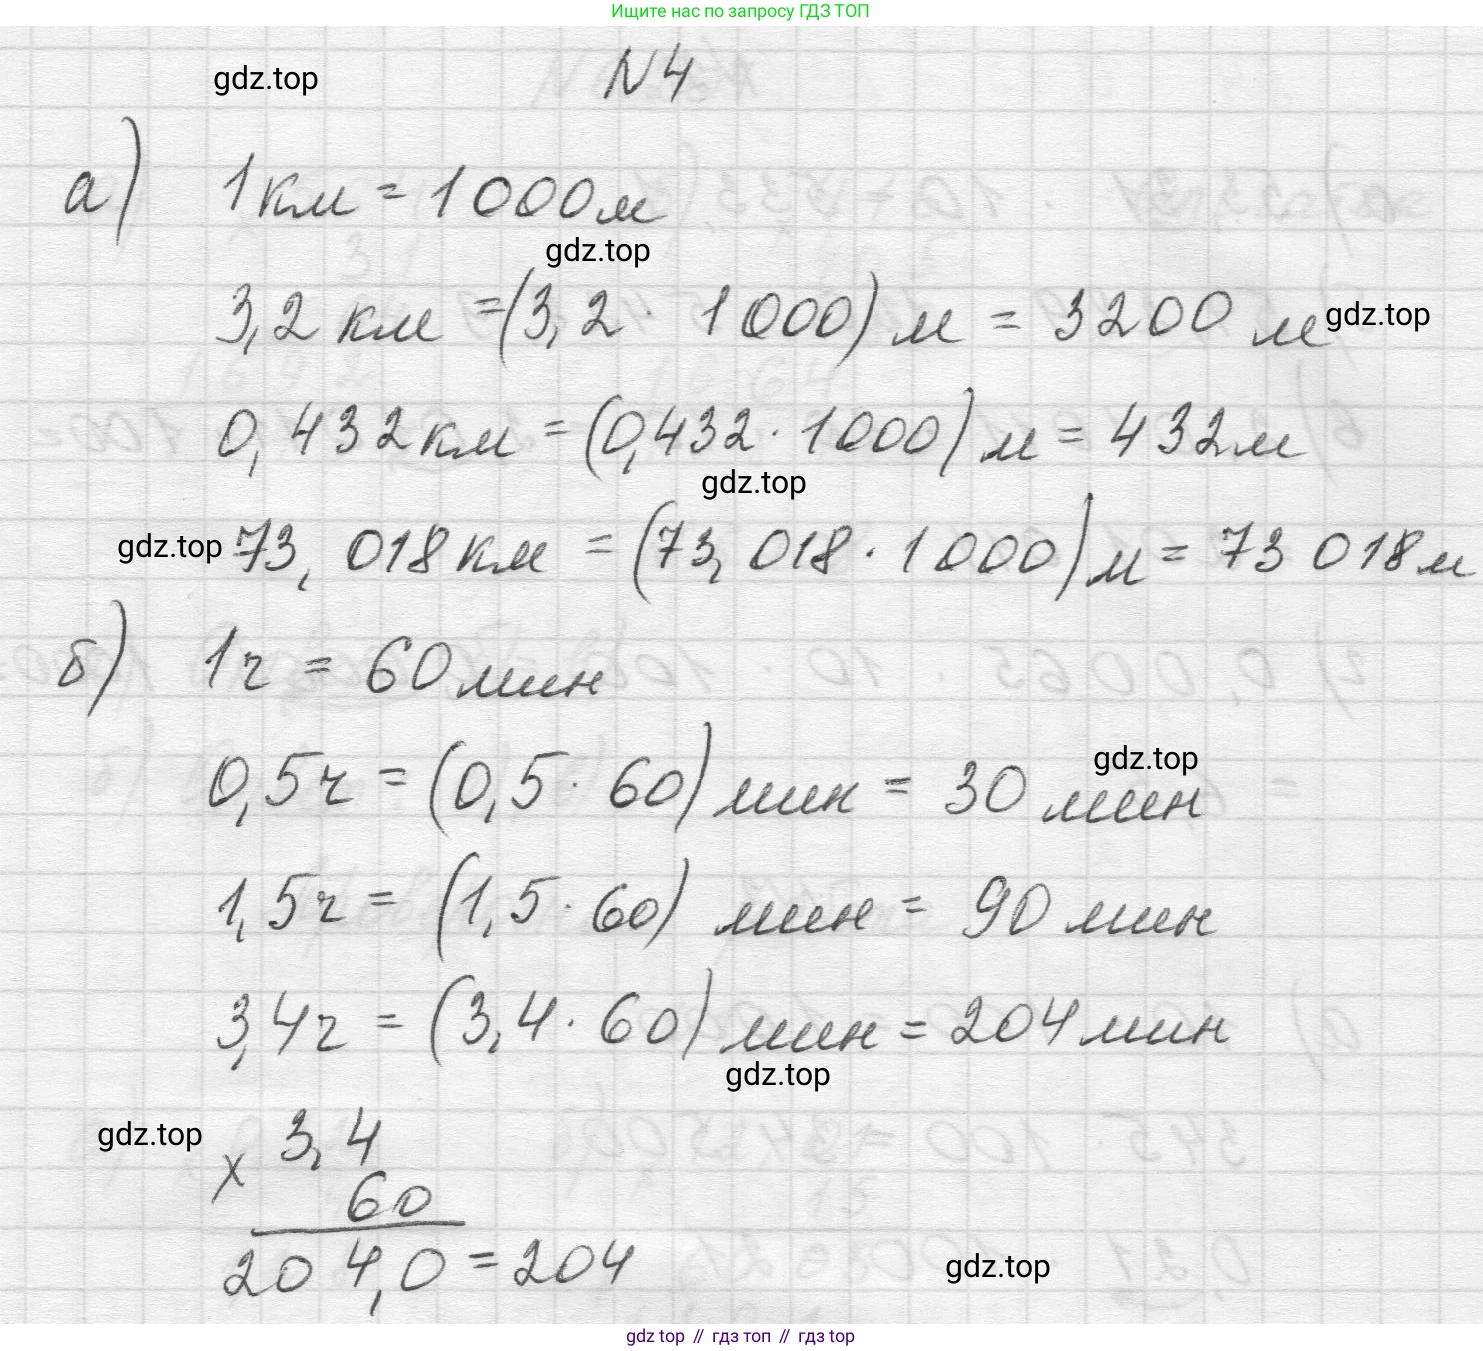 Ищите нас по запросу ГДЗ ТОП
gdz.top
N4
а) 1км = 1000м
gdz.top
3,2 км = (3,2 · 1000) м = 3200 м
gdz.top
0,432км = (0,432 · 1000) м = 432м
gdz.top
gdz.top
73,018км = (73,018 · 1000) м = 73 018м
б) 1ч = 60мин
gdz.top
0,5ч = (0,5 · 60) мин = 30 мин
1,5ч = (1,5 · 60) мин = 90 мин
3,4ч = (3,4 · 60) мин = 204мин
gdz.top
gdz.top
3,4
×
60
204,0 = 204
gdz.top
gdz top // гдз топ // gdz top